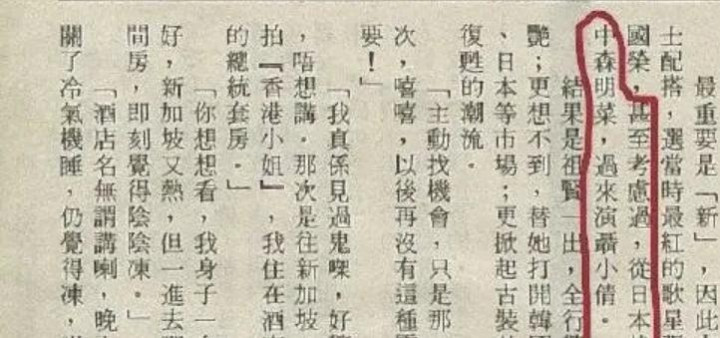 最重要是「新」，因此
士配搭，選當時最紅的歌星
國榮，甚至考慮過，從日本
中森明菜，過來演聶小倩。
結果是祖賢一出，全行
艷；更想不到，替她打開韓
、日本等市場；更掀起古裝
復甦的潮流。
「主動找機會，只是那
次，嘻嘻，以後再沒有這種
要！」
「我真係見過鬼㗎，好
，唔想講。那次是往新加坡
拍『香港小姐』，我住在酒
的總統套房。」
「你想想看，我身子一
好，新加坡又熱，但一進去
間房，即刻覺得陰陰凍。」
「酒店名無謂講喇，晚
關了冷氣機睡，仍覺得凍，